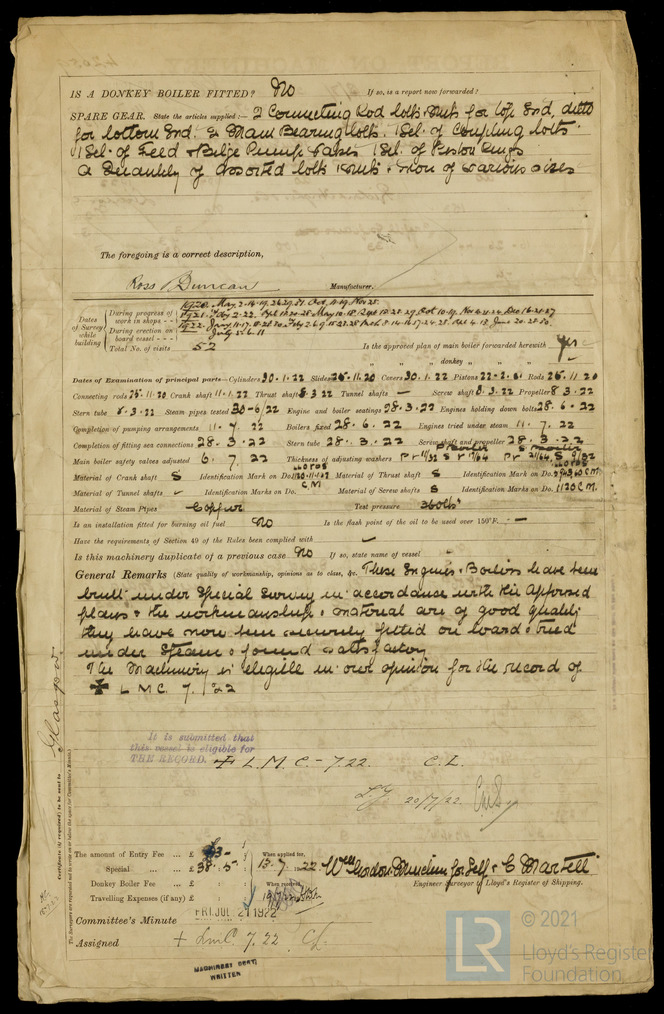 IS A DONKEY BOILER FITTED? No If so, is a report now forwarded?
SPARE GEAR. State the articles supplied:— 2 Connecting Rod bolts & nuts for top End, ditto
for bottom End. 2 Main Bearing bolts. 1 Set of Coupling bolts.
1 Set of Feed & Bilge Pump Valves 1 Set of Piston Rings
A Quantity of Assorted bolts & nuts & Iron of various sizes
The foregoing is a correct description,
Ross Duncan Manufacturer.
Dates of Survey while building
During progress of work in shops --
During erection on board vessel ---
Total No. of visits 52
Is the approved plan of main boiler forwarded herewith Yes
" " " donkey " "
Dates of Examination of principal parts—Cylinders 30.1.22 Slides 25.11.20 Covers 30.1.22 Pistons Rods 25.11.20
Connecting rods 25.11.20 Crank shaft 11.1.22 Thrust shaft 8.3.22 Tunnel shafts — Screw shaft 8.3.22 Propeller 8.3.22
Stern tube 6.3.22 Steam pipes tested 30-6/22 Engine and boiler seatings 28.3.22 Engines holding down bolts 28.6.22
Completion of pumping arrangements 11.7.22 Boilers fixed 28.6.22 Engines tried under steam 11.7.22
Completion of fitting sea connections 28.3.22 Stern tube 28.3.22 Screw shaft and propeller 28.3.22
Main boiler safety valves adjusted 6.7.22 Thickness of adjusting washers
Material of Crank shaft S Identification Mark on Do. Material of Thrust shaft S Identification Mark on Do.
Material of Tunnel shafts — Identification Marks on Do. Material of Screw shaft S Identification Marks on Do. 1120 C.M.
Material of Steam Pipes Copper Test pressure 360 lbs
Is an installation fitted for burning oil fuel No Is the flash point of the oil to be used over 150°F. —
Have the requirements of Section 49 of the Rules been complied with —
Is this machinery duplicate of a previous case No If so, state name of vessel -
General Remarks (State quality of workmanship, opinions as to class, &c. These Engines & Boilers have been
built under Special Survey in accordance with the Approved
plans & the workmanship & material are of good quality
they have now been securely fitted on board & tried
under Steam & found satisfactory
The Machinery is eligible in our opinion for the record of
✠ L M C. 7.22
It is submitted that
this vessel is eligible for
THE RECORD. + L.M.C.- 7.22. C.L.
20/7/22
Glasgow.
Certificate (if required) to be sent to
The Surveyors are requested not to write on or below the space for Committee's Minute.
The amount of Entry Fee ... £ 3 -
Special ... £ 38.5
Donkey Boiler Fee ... £
Travelling Expenses (if any) £
When applied for,
13.7.1922
When received,
Wm Gordon Muncken for Self & C Martell
Engineer Surveyor to Lloyd's Register of Shipping.
Committee's Minute FRI. JUL 21 1922
Assigned + LMC. 7.22 CL
MACHINERY CERT.
WRITTEN
LR © 2021
Lloyd's Register
Foundation